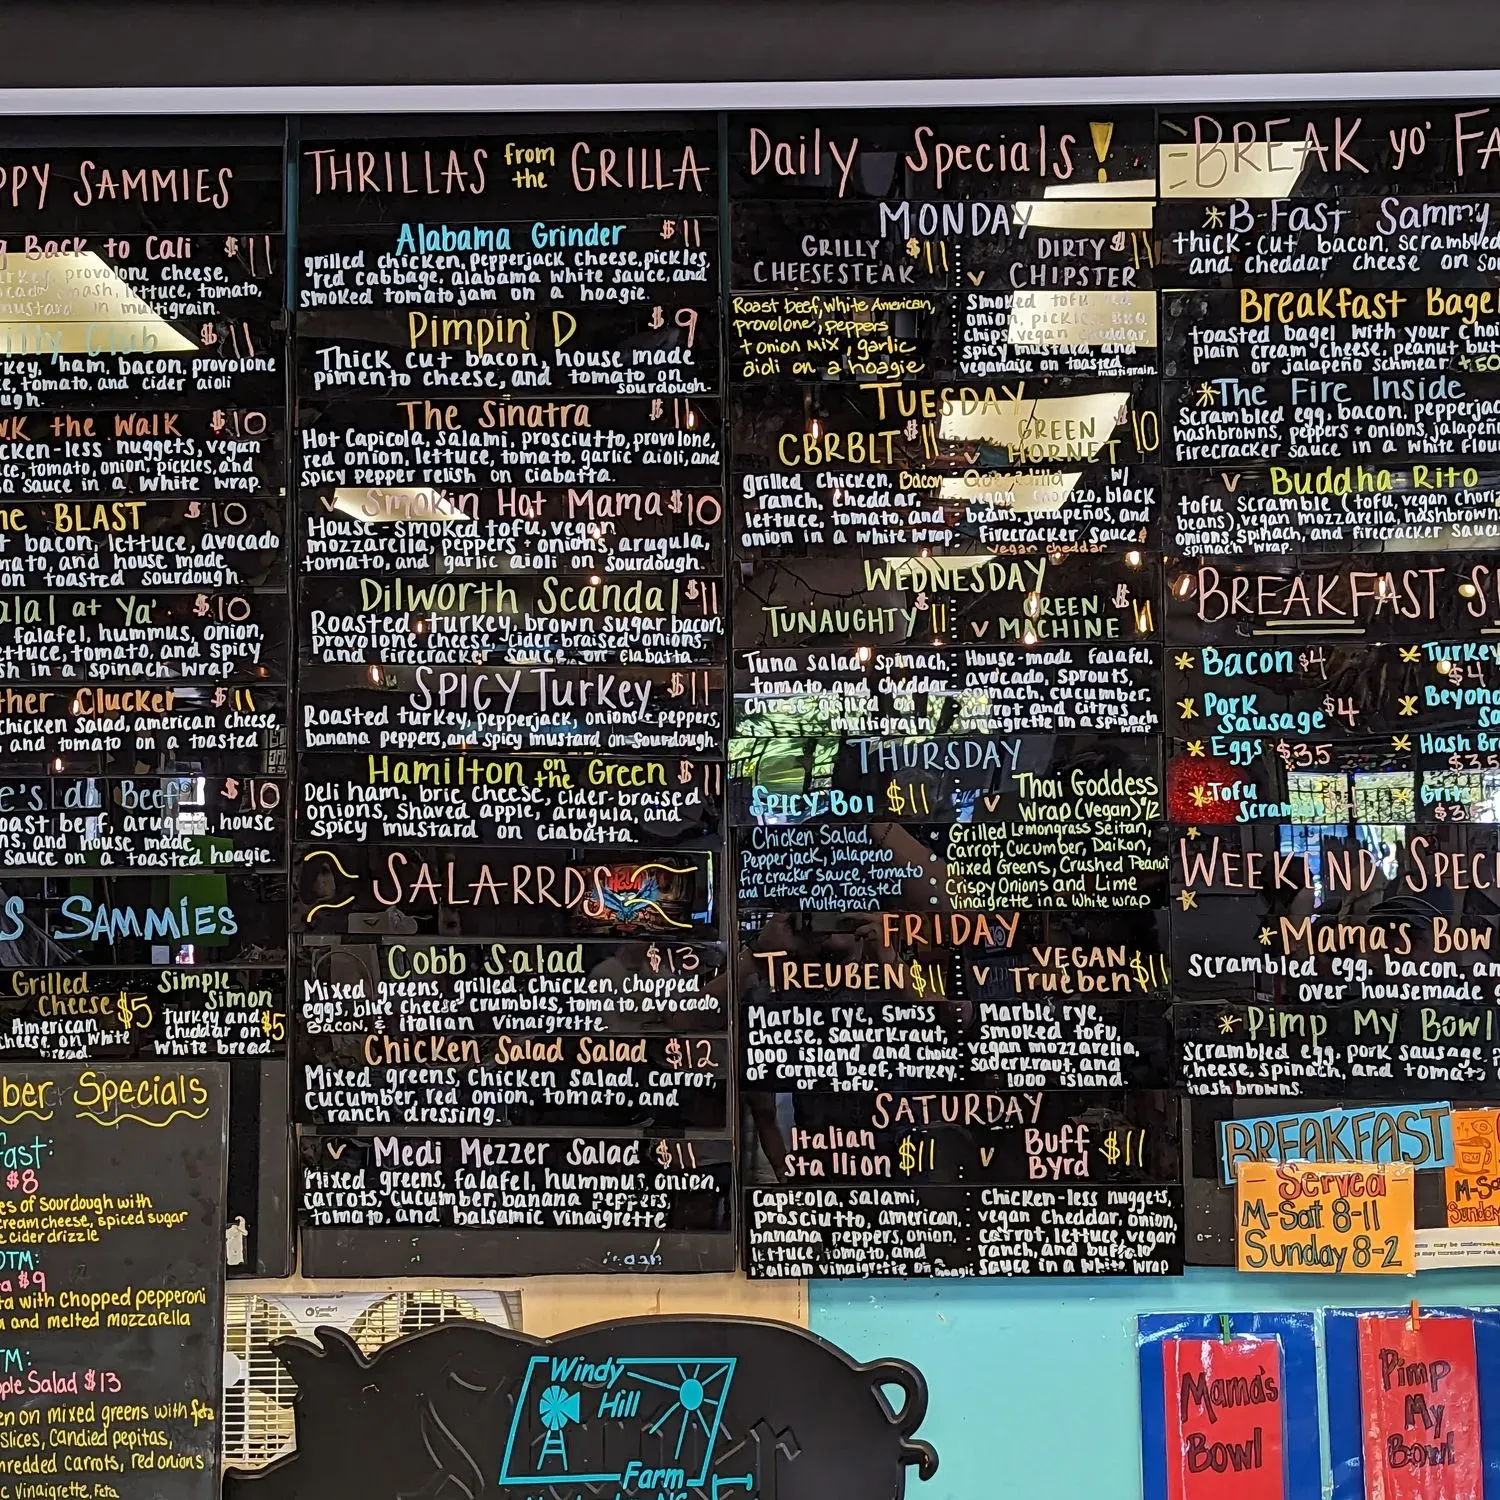 PPY SAMMIES
g Back to Cali $11
provolone cheese,
mash, lettuce, tomato,
mustard in multigrain.
Club $11
rkey, ham, bacon, provolone
e, tomato, and cider aioli
ugh.
WK the Walk $10
cken-less nuggets, vegan
ce, tomato, onion, pickles, and
d sauce in a white wrap.
he BLAST $10
t bacon, lettuce, avocado
mato, and house made
on toasted sourdough.
alal at Ya' $10
falafel, hummus, onion,
ettuce, tomato, and spicy
sh in a spinach wrap.
ther Clucker $11
chicken salad, american cheese,
, and tomato on a toasted
e's da Beef $10
oast beef, arugula, house
ns, and house made
sauce on a toasted hoagie.
S SAMMIES
Grilled Cheese $5
American cheese on white bread.
Simple Simon $5
turkey and cheddar on white bread.
ber Specials
fast:
$8
es of sourdough with
cream cheese, spiced sugar
cider drizzle
OTM:
a $9
ta with chopped pepperoni
a and melted mozzarella
TM:
pple Salad $13
en on mixed greens with feta
slices, candied pepitas,
hredded carrots, red onions
c vinaigrette, Feta
THRILLAS from the GRILLA
Alabama Grinder $11
grilled chicken, pepperjack cheese, pickles,
red cabbage, alabama white sauce, and
smoked tomato jam on a hoagie.
Pimpin' D $9
Thick cut bacon, house made
pimento cheese, and tomato on
sourdough.
The Sinatra $11
Hot Capicola, salami, prosciutto, provolone,
red onion, lettuce, tomato, garlic aioli, and
spicy pepper relish on ciabatta.
v Smokin Hot Mama $10
House-smoked tofu, vegan
mozzarella, peppers + onions, arugula,
tomato, and garlic aioli on sourdough.
Dilworth Scandal $11
Roasted turkey, brown sugar bacon,
provolone cheese, cider-braised onions,
and firecracker sauce on ciabatta
SPICY Turkey $11
Roasted turkey, pepperjack, onions + peppers,
banana peppers, and spicy mustard on sourdough.
Hamilton on the Green $11
Deli ham, brie cheese, cider-braised
onions, shaved apple, arugula, and
spicy mustard on ciabatta.
SALARRDS
Cobb Salad $13
Mixed greens, grilled chicken, chopped
eggs, blue cheese crumbles, tomato, avocado,
Bacon, & italian vinaigrette.
Chicken Salad Salad $12
Mixed greens, chicken salad, carrot,
cucumber, red onion, tomato, and
ranch dressing.
v Medi Mezzer Salad $11
Mixed greens, falafel, hummus, onion,
carrots, cucumber, banana peppers,
tomato, and balsamic vinaigrette
Daily Specials!
MONDAY
GRILLY CHEESESTEAK $11
Roast beef, white American,
provolone, peppers
+ onion mix, garlic
aioli on a hoagie
v DIRTY CHIPSTER $11
Smoked tofu, red
onion, pickles, BBQ
chips, vegan cheddar,
spicy mustard, and
veganaise on toasted
multigrain.
TUESDAY
CBRBLT $11
grilled chicken, Bacon
ranch, cheddar,
lettuce, tomato, and
onion in a white wrap.
v GREEN HORNET 10
Quesadilla w/
vegan chorizo, black
beans, jalapeños, and
firecracker sauce &
vegan cheddar
WEDNESDAY
TUNAUGHTY $11
Tuna salad, spinach,
tomato, and cheddar
cheese grilled on
multigrain
v GREEN MACHINE $11
House-made falafel,
avocado, sprouts,
spinach, cucumber,
carrot and citrus
vinaigrette in a spinach
wrap
THURSDAY
SPICY BOI $11
Chicken Salad,
Pepperjack, jalapeno
firecracker sauce, tomato
and Lettuce on Toasted
Multigrain
v Thai Goddess
Wrap (Vegan) $12
Grilled Lemongrass Seitan,
Carrot, Cucumber, Daikon,
Mixed Greens, Crushed Peanut
Crispy Onions and Lime
Vinaigrette in a white wrap
FRIDAY
TREUBEN $11
Marble rye, swiss
cheese, sauerkraut,
1000 island and choice
of corned beef, turkey,
or tofu.
v VEGAN Trueben $11
Marble rye,
smoked tofu,
vegan mozzarella,
saderkraut, and
1000 island.
SATURDAY
Italian Stallion $11
Capicola, salami,
prosciutto, american,
banana peppers, onion,
lettuce, tomato, and
italian vinaigrette on hoagie
v Buff Byrd $11
Chicken-less nuggets,
vegan cheddar, onion,
carrot, lettuce, vegan
ranch, and buffalo
sauce in a white wrap
BREAK yo' FA
*B-Fast Sammy
thick-cut bacon, scrambled
and cheddar cheese on sou
Breakfast Bage
toasted bagel with your choi
plain cream cheese, peanut but
or jalapeño schmear. +50
*The Fire Inside
Scrambled egg, bacon, pepperjac
hashbrowns, peppers + onions, jalapeñ
firecracker sauce in a white flour
v Buddha Rito
tofu scramble (tofu, vegan choriz
beans), vegan mozzarella, hashbrown
onions, spinach, and firecracker sauce
spinach wrap.
BREAKFAST S
* Bacon $4
* Turkey $4
* Pork Sausage $4
* Beyond Sa
* Eggs $3.5
* Hash Br $3.5
* Tofu Scramble
* Grits $3.
WEEKEND SPECI
*Mama's Bow
Scrambled egg, bacon, an
over housemade
*Pimp My Bowl
Scrambled egg, pork sausage, p
cheese, spinach, and tomato
hash browns.
BREAKFAST
Served
M-Sat 8-11
Sunday 8-2
M-Sa
Sunday
may be
Mama's
Bowl
Pimp
My
Bowl
Windy
Hill
Farm
Comfort